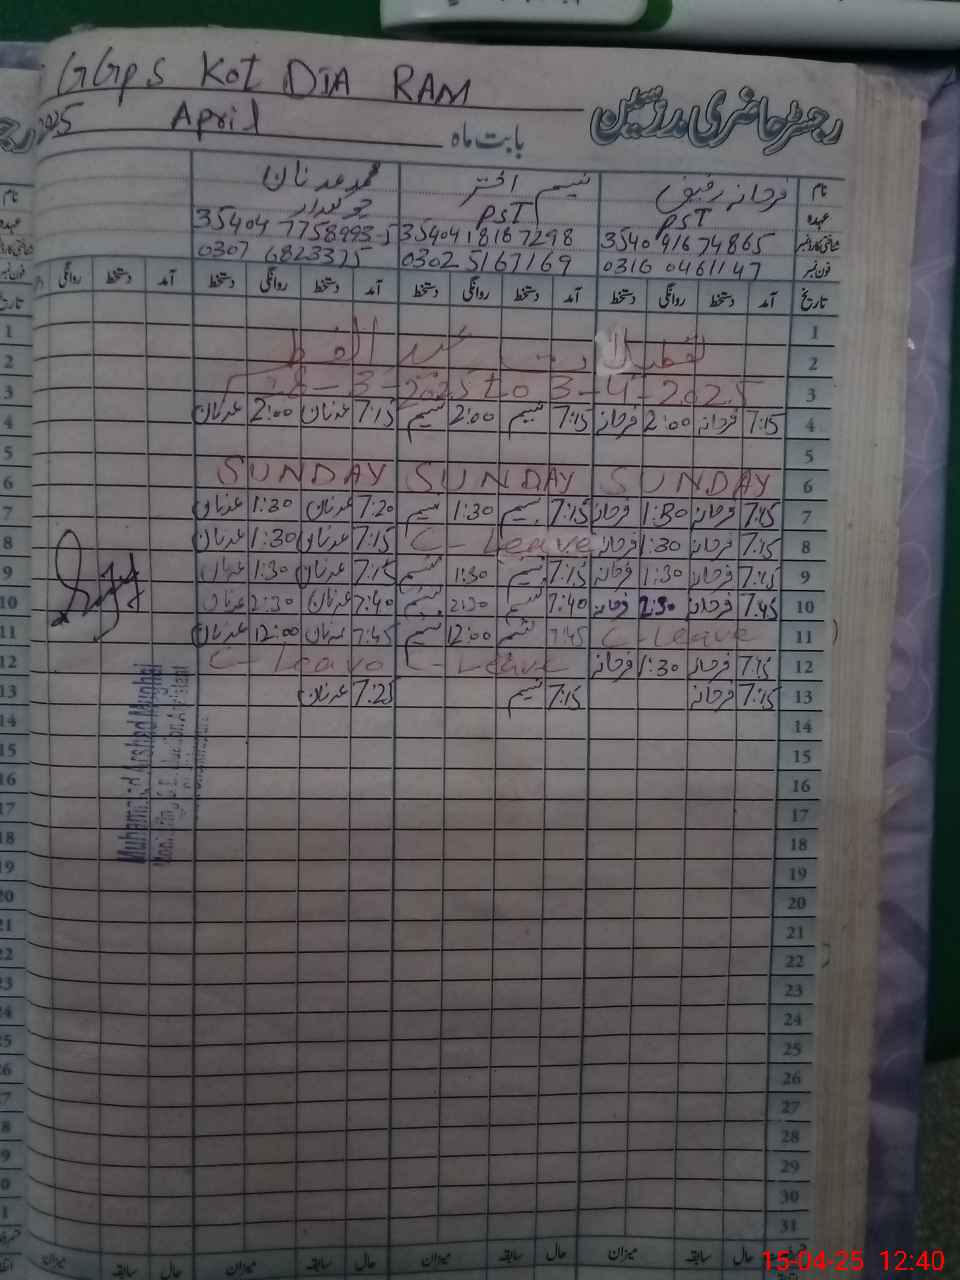 GGPS Kot DIA RAM
رجسٹر حاضری مدرسین
بابت ماہ April 2025
نام فرحانہ رفیق نسیم اختر محمد عدنان
عہدہ PST PST چوکیدار
شناختی کارڈ نمبر 35404 7758993-5
فون نمبر 0316 0461147 0302 5167169 0307 6823375
تاریخ آمد دستخط روانگی دستخط آمد دستخط روانگی دستخط آمد دستخط روانگی دستخط آمد دستخط روانگی
1
2 عید الفطر
3 28-3-2025 to 3-4-2025
4 7:15 فرحانہ 2:00 فرحانہ 7:15 نسیم 2:00 نسیم 7:15 عدنان 2:00 عدنان
5
6 SUNDAY SUNDAY SUNDAY
7 7:15 فرحانہ 1:30 فرحانہ 7:15 نسیم 1:30 نسیم 7:20 عدنان 1:30 عدنان
8 7:15 فرحانہ 1:30 فرحانہ C-Leave 7:15 عدنان 1:30 عدنان
9 7:15 فرحانہ 1:30 فرحانہ 7:15 نسیم 1:30 نسیم 7:15 عدنان 1:30 عدنان
10 7:45 فرحانہ 2:30 فرحانہ 7:40 نسیم 2:30 نسیم 7:40 عدنان 2:30 عدنان
11 C-Leave 7:45 نسیم 12:00 نسیم 7:45 عدنان 12:00 عدنان
12 7:15 فرحانہ 1:30 فرحانہ C-Leave C-Leave
13 7:15 فرحانہ 7:15 نسیم 7:25 عدنان
14
15
16
17
18
19
20
21
22
23
24
25
26
27
28
29
30
31
Muhammad Arshad Mughal
حال سابقہ میزان حال سابقہ میزان حال سابقہ میزان حال سابقہ میزان
15-04-25 12:40